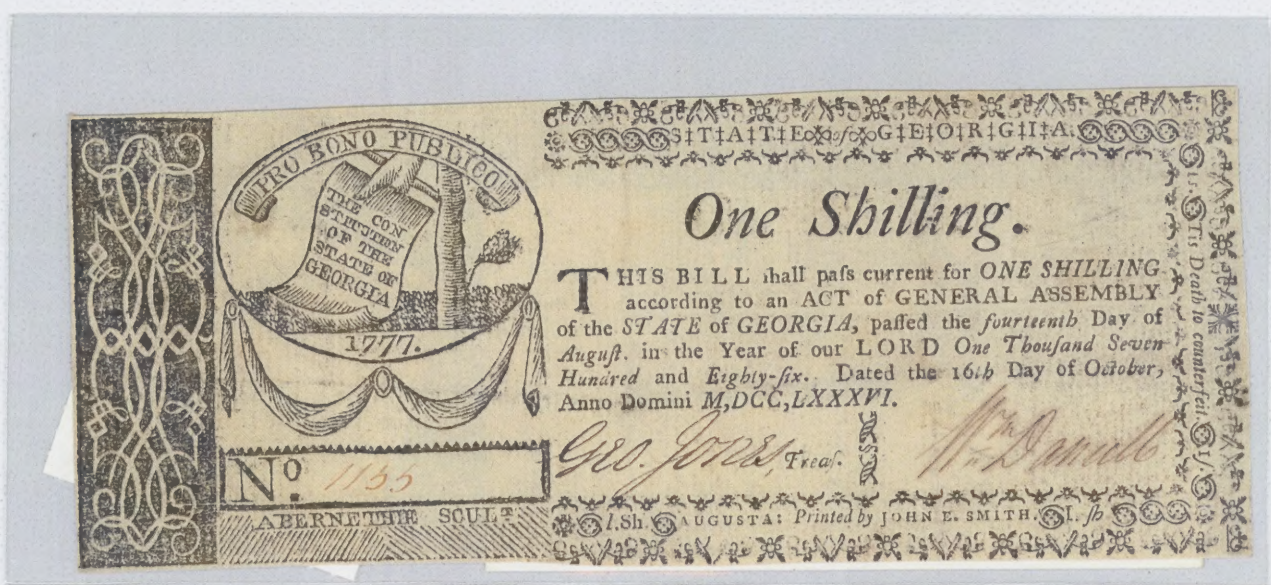 PRO BONO PUBLICO
THE CON
STITUTEN
OF THE
STATE OF
GEORGIA
1777.
No. 1155
ABERNETHIE SCULT
S‡T‡A‡T‡E of G‡E‡O‡R‡G‡I‡A.
One Shilling.
THIS BILL ſhall paſs current for ONE SHILLING
according to an ACT of GENERAL ASSEMBLY
of the STATE of GEORGIA, paſſed the fourteenth Day of
Auguſt. in the Year of our LORD One Thouſand Seven
Hundred and Eighty-ſix. Dated the 16th Day of October,
Anno Domini M,DCC,LXXXVI.
Geo. Jones, Treaſ.
1.Sh. AUGUSTA: Printed by JOHN E. SMITH. 1. ſh
1ſ. 'Tis Death to counterfeit. 1/.